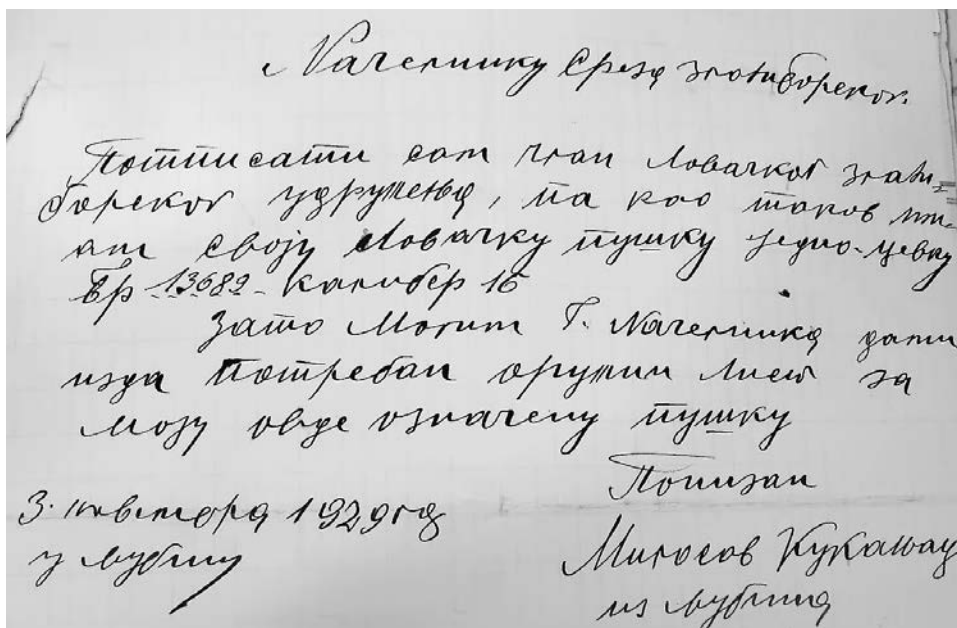 Начелнику Среза златиборског.
Потписати сам члан Ловачког злати-
борског удружења, па као такав имам
своју Ловачку пушку једно-цевку
Бр 13689 - Калибер 16
Зато Молим Г. Начелника дами
изда Потребан оружни лист за
моју овде означену пушку
Понизан
3. новембра 1929 год
у Љубишу
из Љубиша